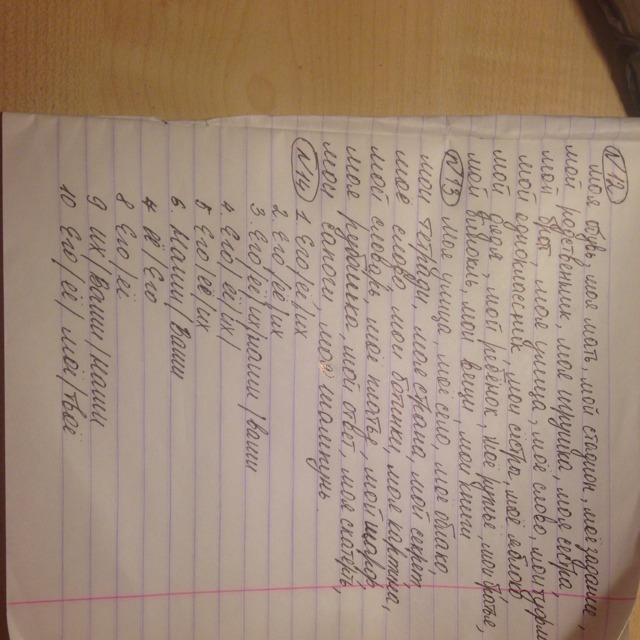 N12
моя обувь, моя мать, мой стадион, моё здание,
мой родственник, моя игрушка, моя сестра,
мой рот, моя улица, моё слово, мои туфли
мой одноклассник, мои сёстры, моё яблоко
мой дядя, мой ребёнок, мои братья,
мой альбом, мои вещи, мои книги
N13 моя улица, моё село, моё облако,
мои тетради, моя страна, мой секрет
моё слово, мои ботинки, моя картина,
мой словарь, моё платье, мой город
моя рубашка, мой ответ, моя скатерть,
мои сапоги, мой шампунь.
N14 1. Его/её/их
2. Его/её/их
3. Его/её/их/наши/ваши
4. Его/её/их/
5 Его/её/их
6. Наши/ваши
7. её/его
8 Его/её
9 их/ваши/наши
10 Его/её/мои/твои